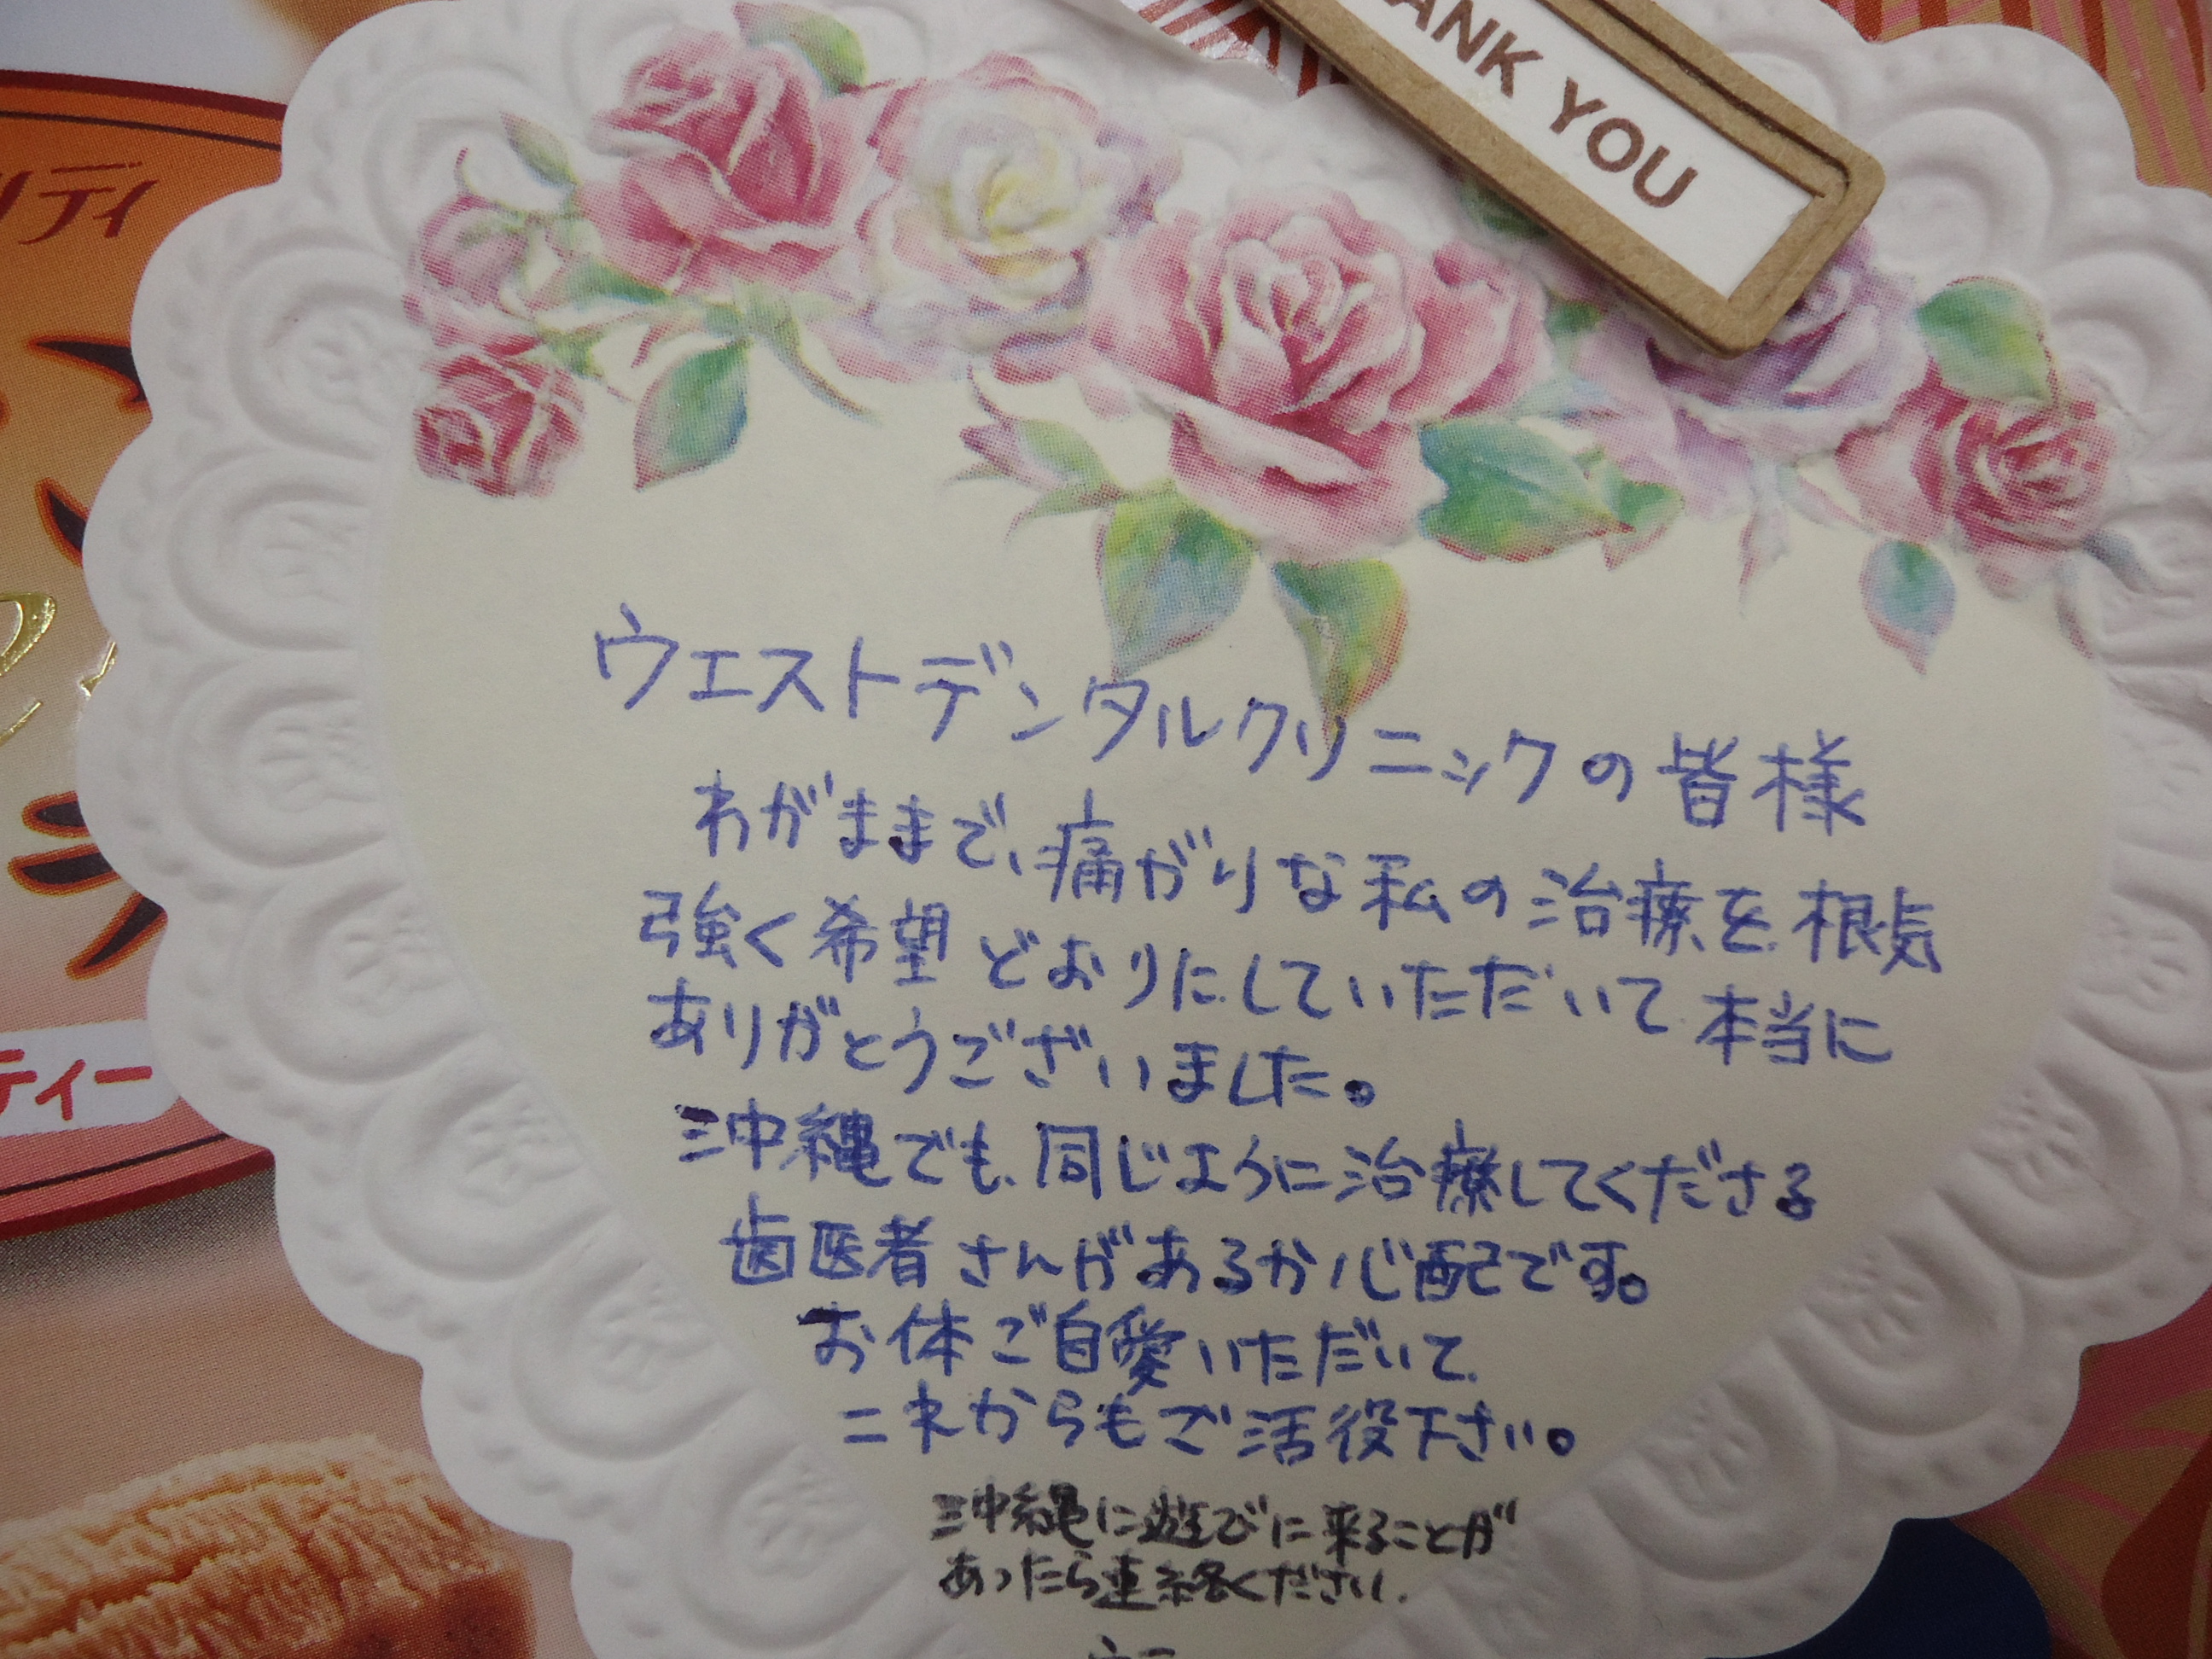 ANK YOU
ティ
ティー
ウエストデンタルクリニックの皆様
わがままで、痛がりな私の治療を根気
強く希望どおりにしていただいて本当に
ありがとうございました。
沖縄でも、同じように治療してくださる
歯医者さんがあるか心配です。
お体ご自愛いただいて
これからもご活役下さい。
沖縄に遊びに来ることが
あったら連絡ください.